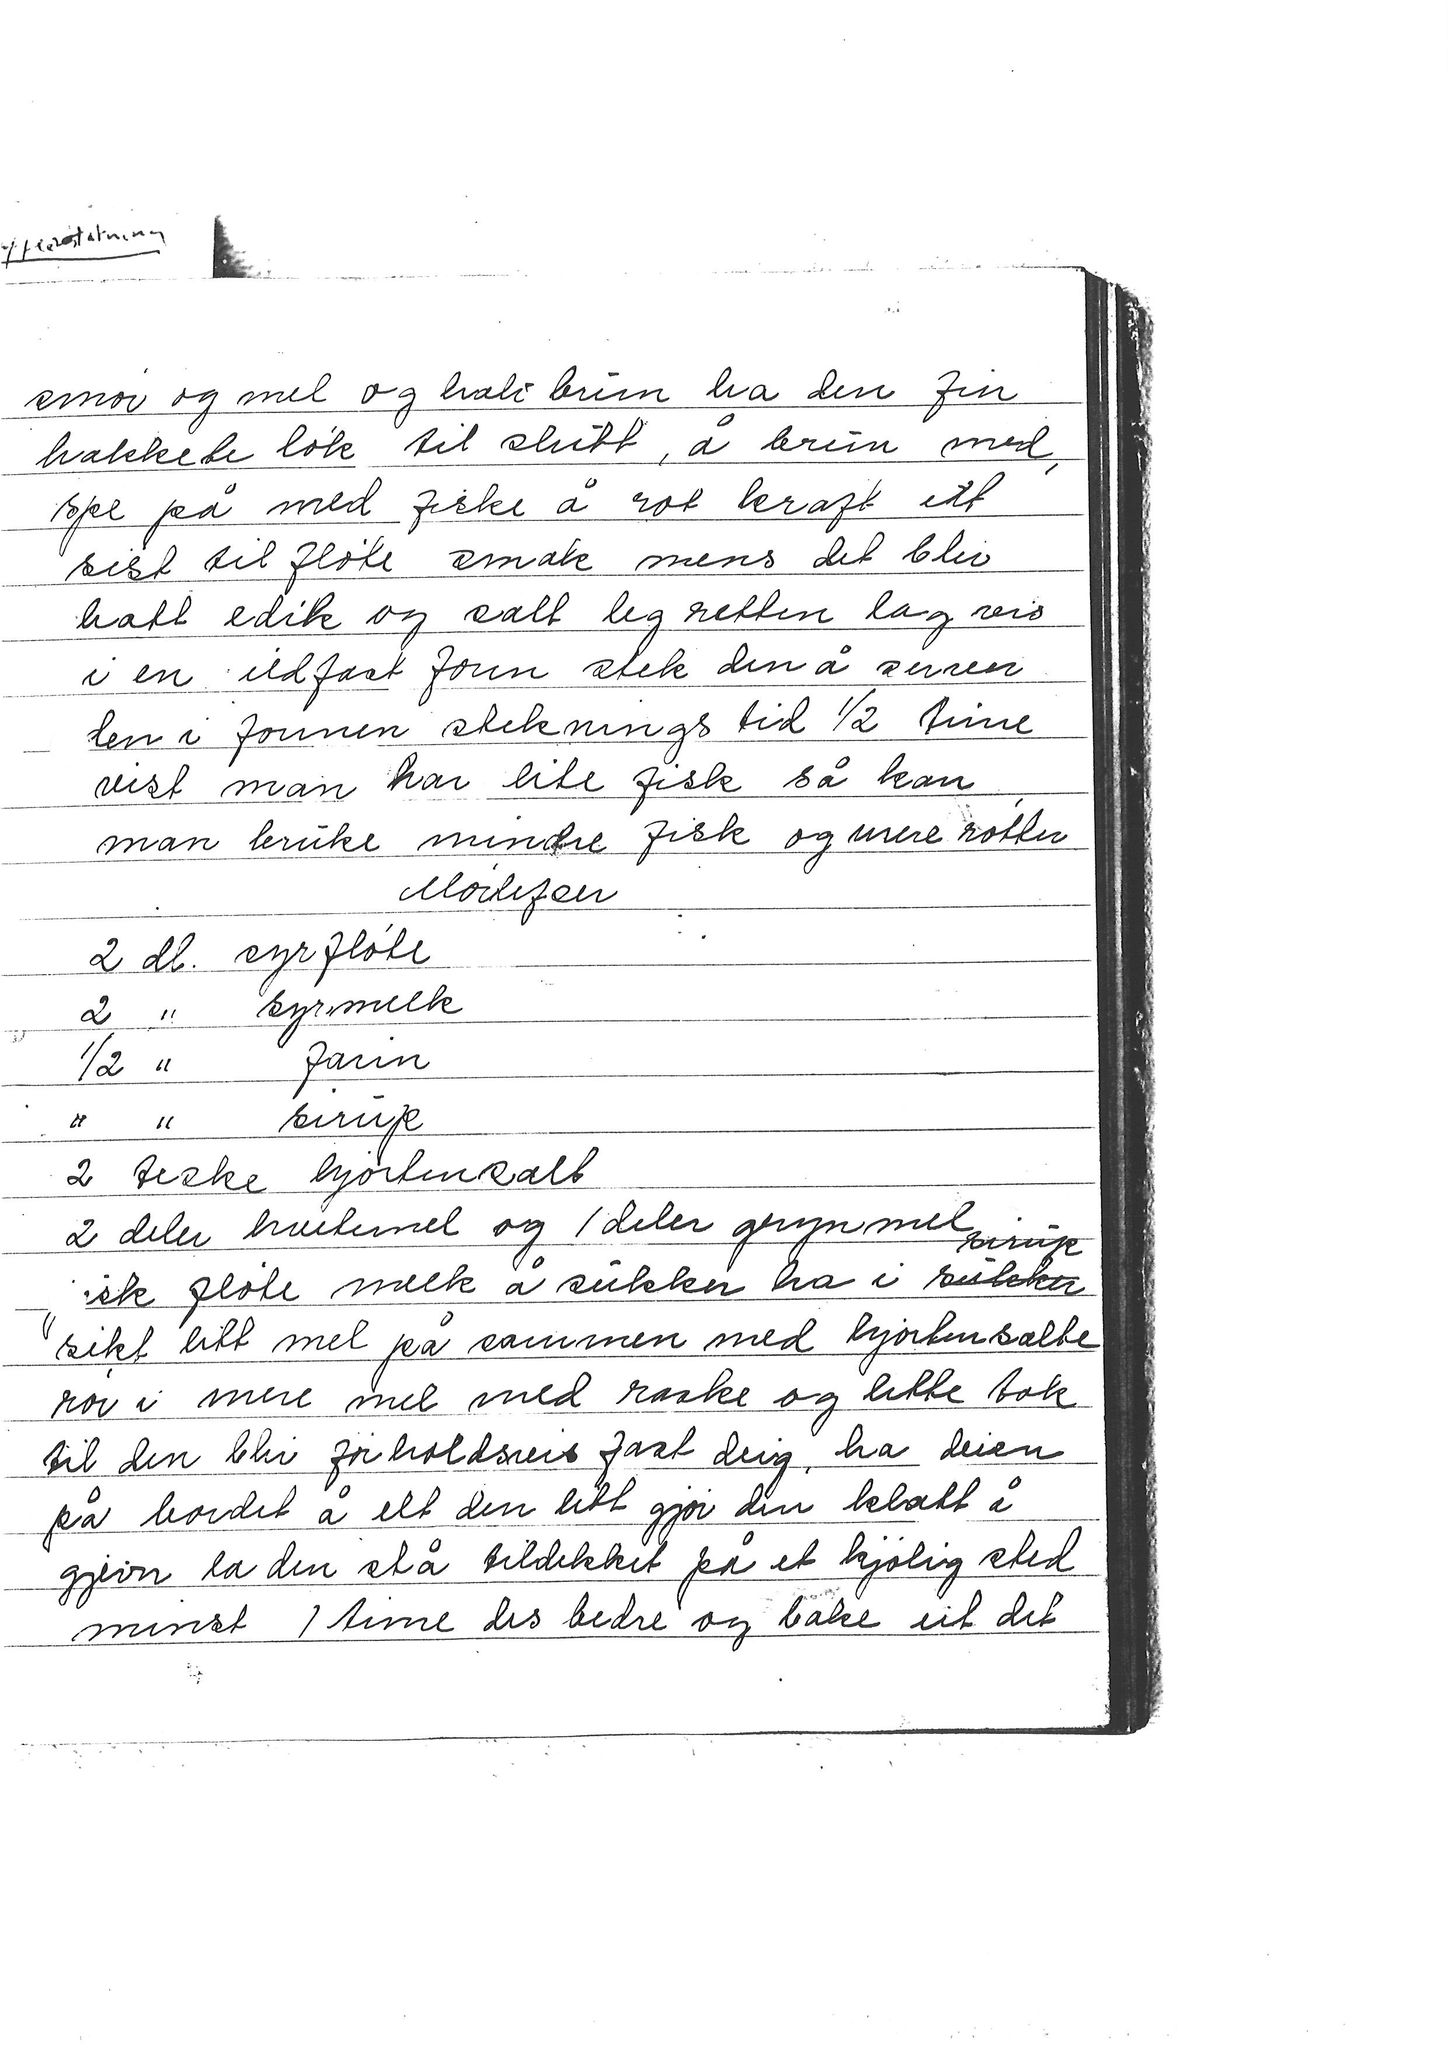 smör og mel og hali brün ha den fin
hakkete lök til slütt, å brün med,
spe på med fiske å rot kraft ett
sist til flöte smak mens det blir
hatt edik og salt leg retten lag vis
i en ildfast form stek den å server
den i formen steknings tid 1/2 time
vist man har lite fisk så kan
man brüke mindre fisk og mere rötter
Mörlefser
2 dl. syrflöte
2 " syrmelk
1/2 " farin
" " sirüp
2 teske hjortensalt
2 deler hvetemel og 1 deler grynmel
sirüp
isk flöte melk å sükker ha i sükker
sikt litt mel på sammen med hjortensalte
rör i mere mel med raske og lette tak
til den blir forholdsvis fast deig, ha deien
på bordet å elt den litt gjör den klatt å
gjevn la den stå tildekket på et kjölig sted
minst 1 time des bedre og bake üt det